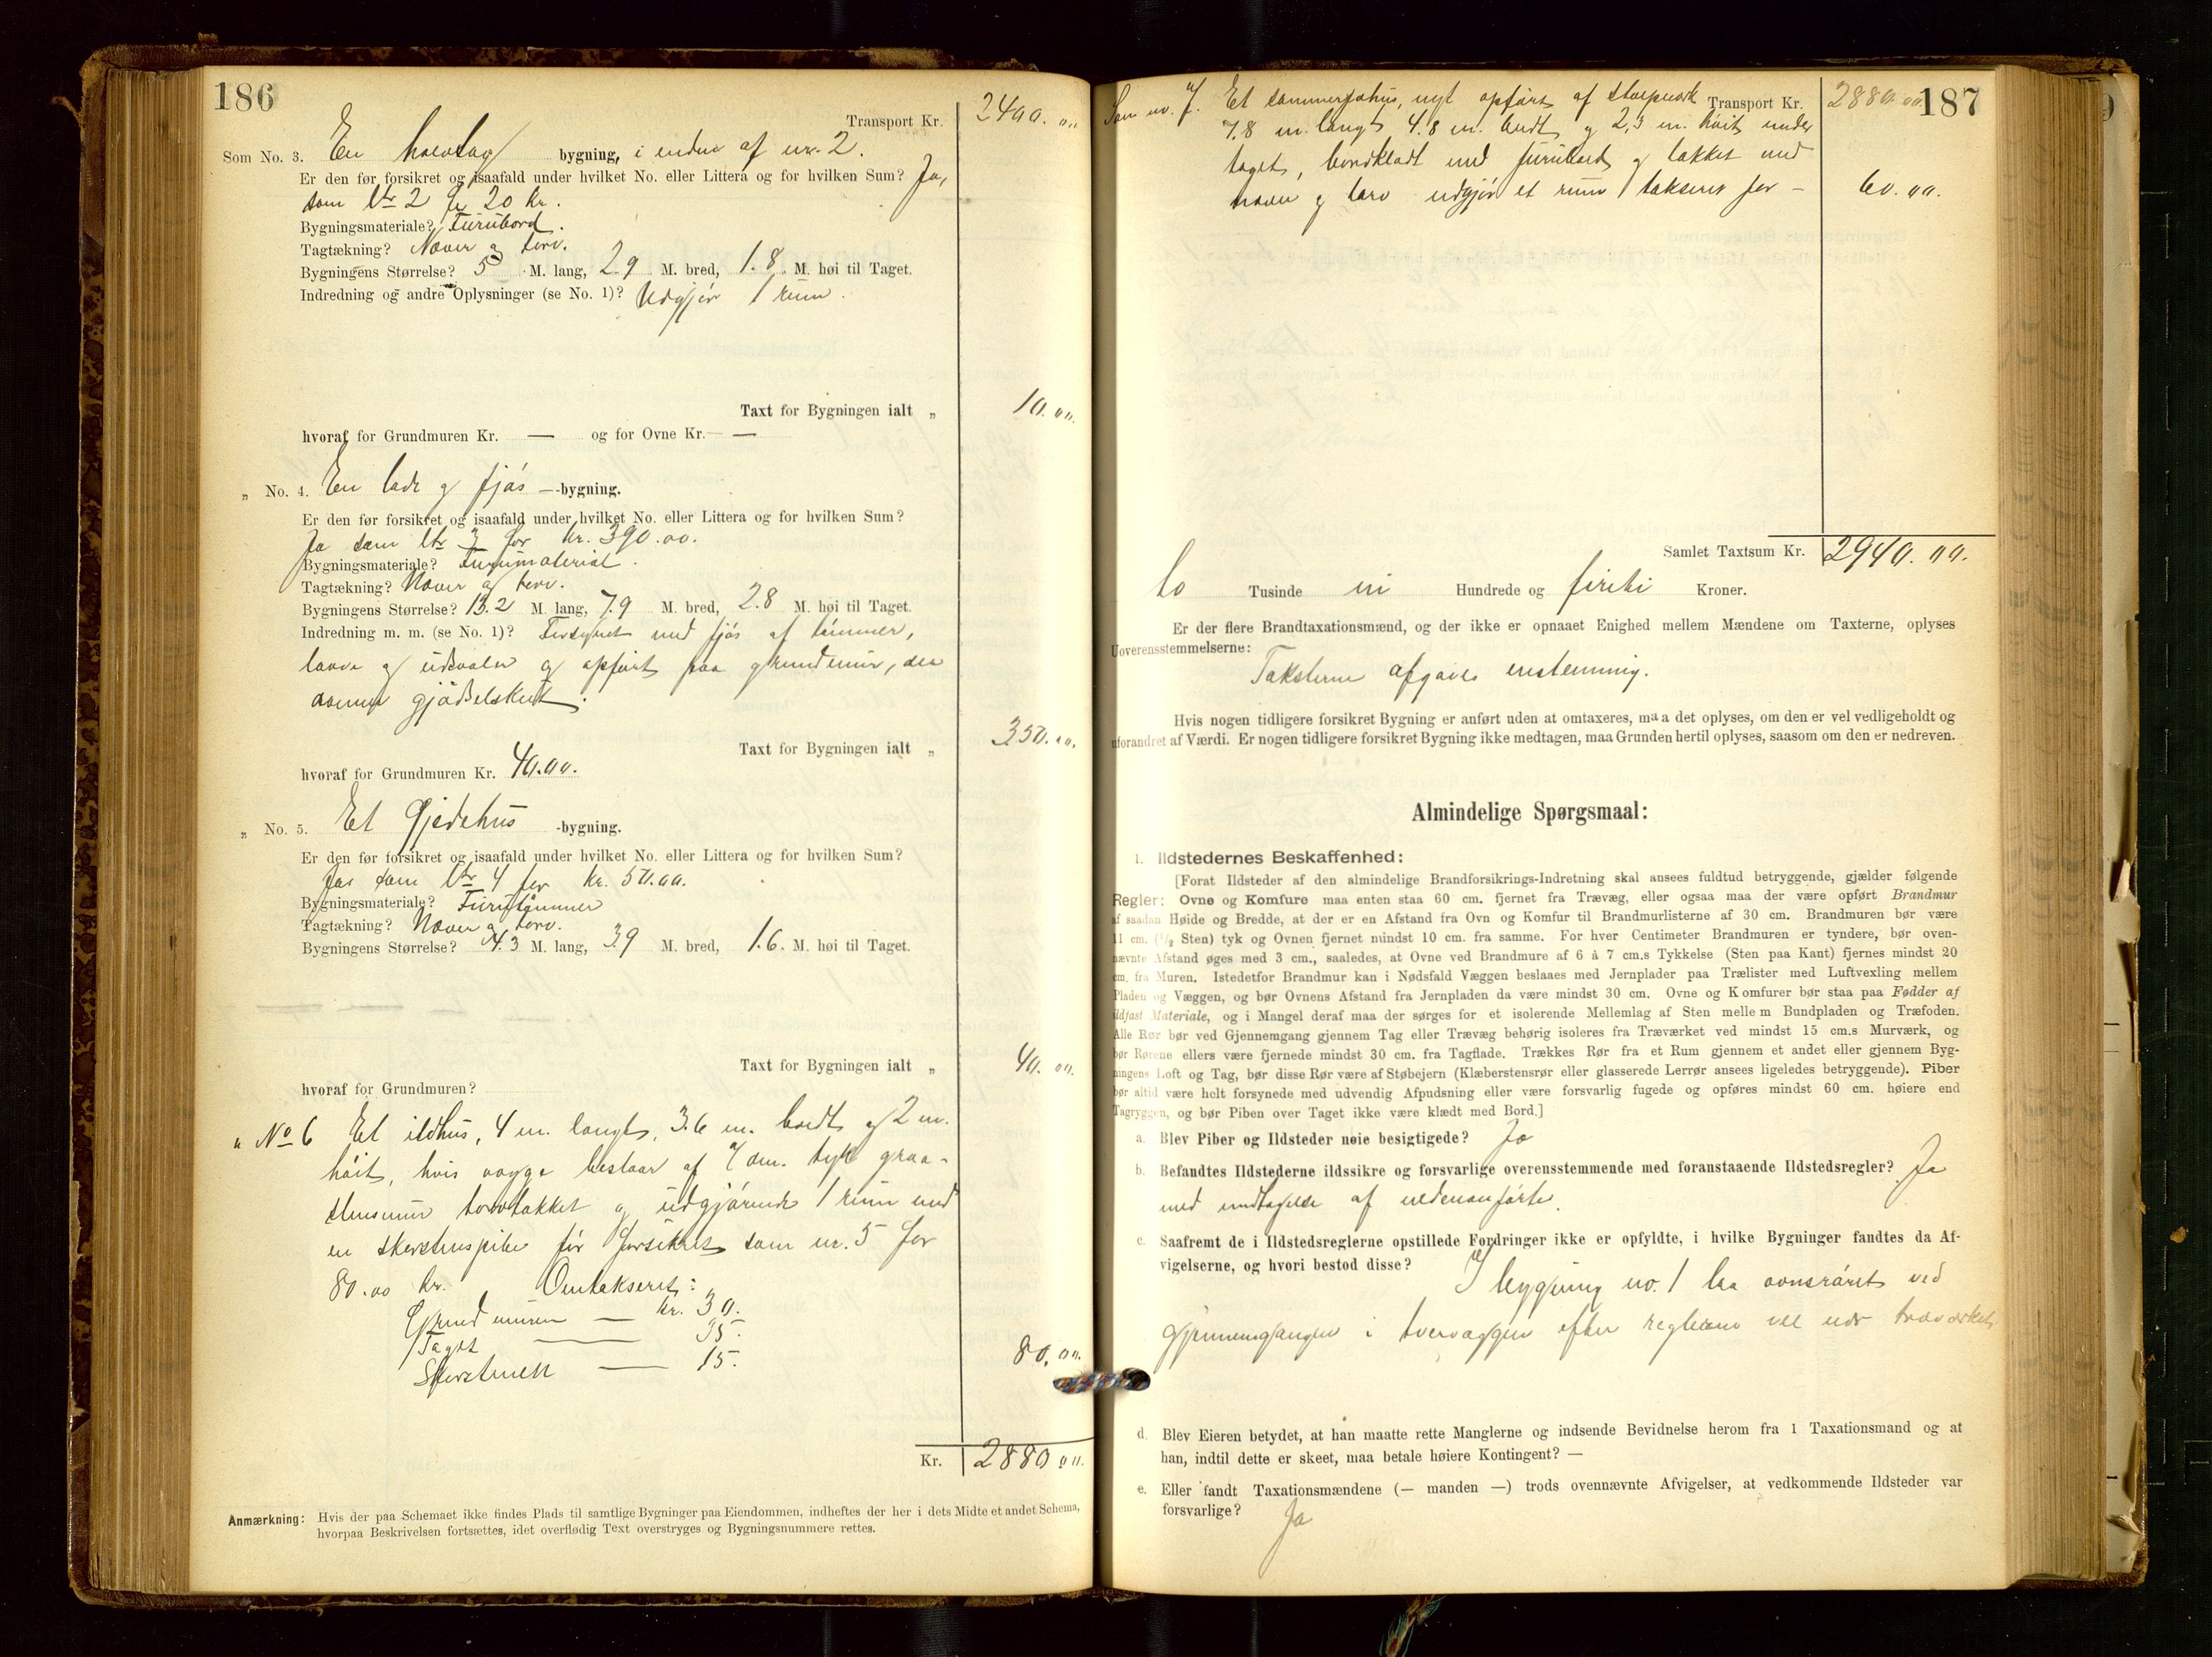 186
Transport Kr. 2400.00
Som No. 3. En halvtag bygning, i enden af nr. 2.
Er den før forsikret og isaafald under hvilket No. eller Littera og for hvilken Sum? Ja,
som ltr 2 for 20 kr.
Bygningsmateriale? Furubord.
Tagtækning? Næver og torv.
Bygningens Størrelse? 5 M. lang, 2.9 M. bred, 1.8 M. høi til Taget.
Indredning og andre Oplysninger (se No. 1)? Udgjør 1 rum.
Taxt for Bygningen ialt „ 10.00.
hvoraf for Grundmuren Kr. — og for Ovne Kr. —
„ No. 4. En lade og fjøs -bygning.
Er den før forsikret og isaafald under hvilket No. eller Littera og for hvilken Sum?
Ja som ltr 3 for kr. 390.00.
Bygningsmateriale? Furumaterial.
Tagtækning? Næver og torv.
Bygningens Størrelse? 13.2 M. lang, 7.9 M. bred, 2.8 M. høi til Taget.
Indredning m. m. (se No. 1)? Forsynet med fjøs af tømmer,
laave og udsvaler og opført paa grundmur, der
danner gjødselskut.
Taxt for Bygningen ialt „ 350.00.
hvoraf for Grundmuren Kr. 40.00.
„ No. 5. Et Gjedehus -bygning.
Er den før forsikret og isaafald under hvilket No. eller Littera og for hvilken Sum?
Ja som ltr 4 for kr. 50.00.
Bygningsmateriale? Furutømmer
Tagtækning? Næver og torv.
Bygningens Størrelse? 4.3 M. lang, 3.9 M. bred, 1.6. M. høi til Taget.
Taxt for Bygningen ialt „ 40.00.
hvoraf for Grundmuren?
„ No 6 Et ildhus, 4 m. langt, 3.6 m. bredt og 2 m.
høit, hvis vægge bestaar af dm. tyk graa-
stensmur torvtækket og udgjørende 1 rum med
en skorstenspibe før forsikret som nr. 5 for
80.00 kr. Omtakseret:
Grundmuren — kr. 30.
Taget — 35.
Skorstenen — 15. 80.00.
Kr. 2880.00.
Anmærkning: Hvis der paa Schemaet ikke findes Plads til samtlige Bygninger paa Eiendommen, indheftes der her i dets Midte et andet Schema,
hvorpaa Beskrivelsen fortsættes, idet overflødig Text overstryges og Bygningsnummere rettes.
187
Som no. 7. Et sommerfjøshus, nyt opført af stavpverk Transport Kr. 2880.00
7.8 m. langt 4.8 m. bredt og 2,3 m. høit under
taget, bordklædt med furubord og tækket med
næver og torv udgjør et rum takseret for — 60.00.
Samlet Taxtsum Kr. 2940.00.
to Tusinde ni Hundrede og firiti Kroner.
Er der flere Brandtaxationsmænd, og der ikke er opnaaet Enighed mellem Mændene om Taxterne, oplyses
Uoverensstemmelserne:
Taksterne afgaves enstemmig.
Hvis nogen tidligere forsikret Bygning er anført uden at omtaxeres, maa det oplyses, om den er vel vedligeholdt og
uforandret af Værdi. Er nogen tidligere forsikret Bygning ikke medtagen, maa Grunden hertil oplyses, saasom om den er nedreven.
Almindelige Spørgsmaal:
1. Ildstedernes Beskaffenhed:
[Forat Ildsteder af den almindelige Brandforsikrings-Indretning skal ansees fuldtud betryggende, gjælder følgende
Regler: Ovne og Komfure maa enten staa 60 cm. fjernet fra Trævæg, eller ogsaa maa der være opført Brandmur
af saadan Høide og Bredde, at der er en Afstand fra Ovn og Komfur til Brandmurlisterne af 30 cm. Brandmuren bør være
11 cm. (1/2 Sten) tyk og Ovnen fjernet mindst 10 cm. fra samme. For hver Centimeter Brandmuren er tyndere, bør oven-
nævnte Afstand øges med 3 cm., saaledes, at Ovne ved Brandmure af 6 à 7 cm.s Tykkelse (Sten paa Kant) fjernes mindst 20
cm. fra Muren. Istedetfor Brandmur kan i Nødsfald Væggen beslaaes med Jernplader paa Trælister med Luftvexling mellem
Pladen og Væggen, og bør Ovnens Afstand fra Jernpladen da være mindst 30 cm. Ovne og Komfurer bør staa paa Fødder af
ildfast Materiale, og i Mangel deraf maa der sørges for et isolerende Mellemlag af Sten mellem Bundpladen og Træfoden.
Alle Rør bør ved Gjennemgang gjennem Tag eller Trævæg behørig isoleres fra Træværket ved mindst 15 cm.s Murværk, og
bør Rørene ellers være fjernede mindst 30 cm. fra Tagflade. Trækkes Rør fra et Rum gjennem et andet eller gjennem Byg-
ningens Loft og Tag, bør disse Rør være af Støbejern (Klæberstensrør eller glasserede Lerrør ansees ligeledes betryggende). Piber
bør altid være helt forsynede med udvendig Afpudsning eller være forsvarlig fugede og opføres mindst 60 cm. høiere end
Tagryggen, og bør Piben over Taget ikke være klædt med Bord.]
a. Blev Piber og Ildsteder nøie besigtigede? Ja
b. Befandtes Ildstederne ildssikre og forsvarlige overensstemmende med foranstaaende Ildstedsregler? Ja
med undtagelse af nedenanførte.
c. Saafremt de i Ildstedsreglerne opstillede Fordringer ikke er opfyldte, i hvilke Bygninger fandtes da Af-
vigelserne, og hvori bestod disse? I bygning no. 1 laa ovnsrøret ved
gjennemgangen i tvervæggen efter reglerne vel nær træverket
d. Blev Eieren betydet, at han maatte rette Manglerne og indsende Bevidnelse herom fra 1 Taxationsmand og at
han, indtil dette er skeet, maa betale høiere Kontingent? —
e. Eller fandt Taxationsmændene (— manden —) trods ovennævnte Afvigelser, at vedkommende Ildsteder var
forsvarlige?
Ja